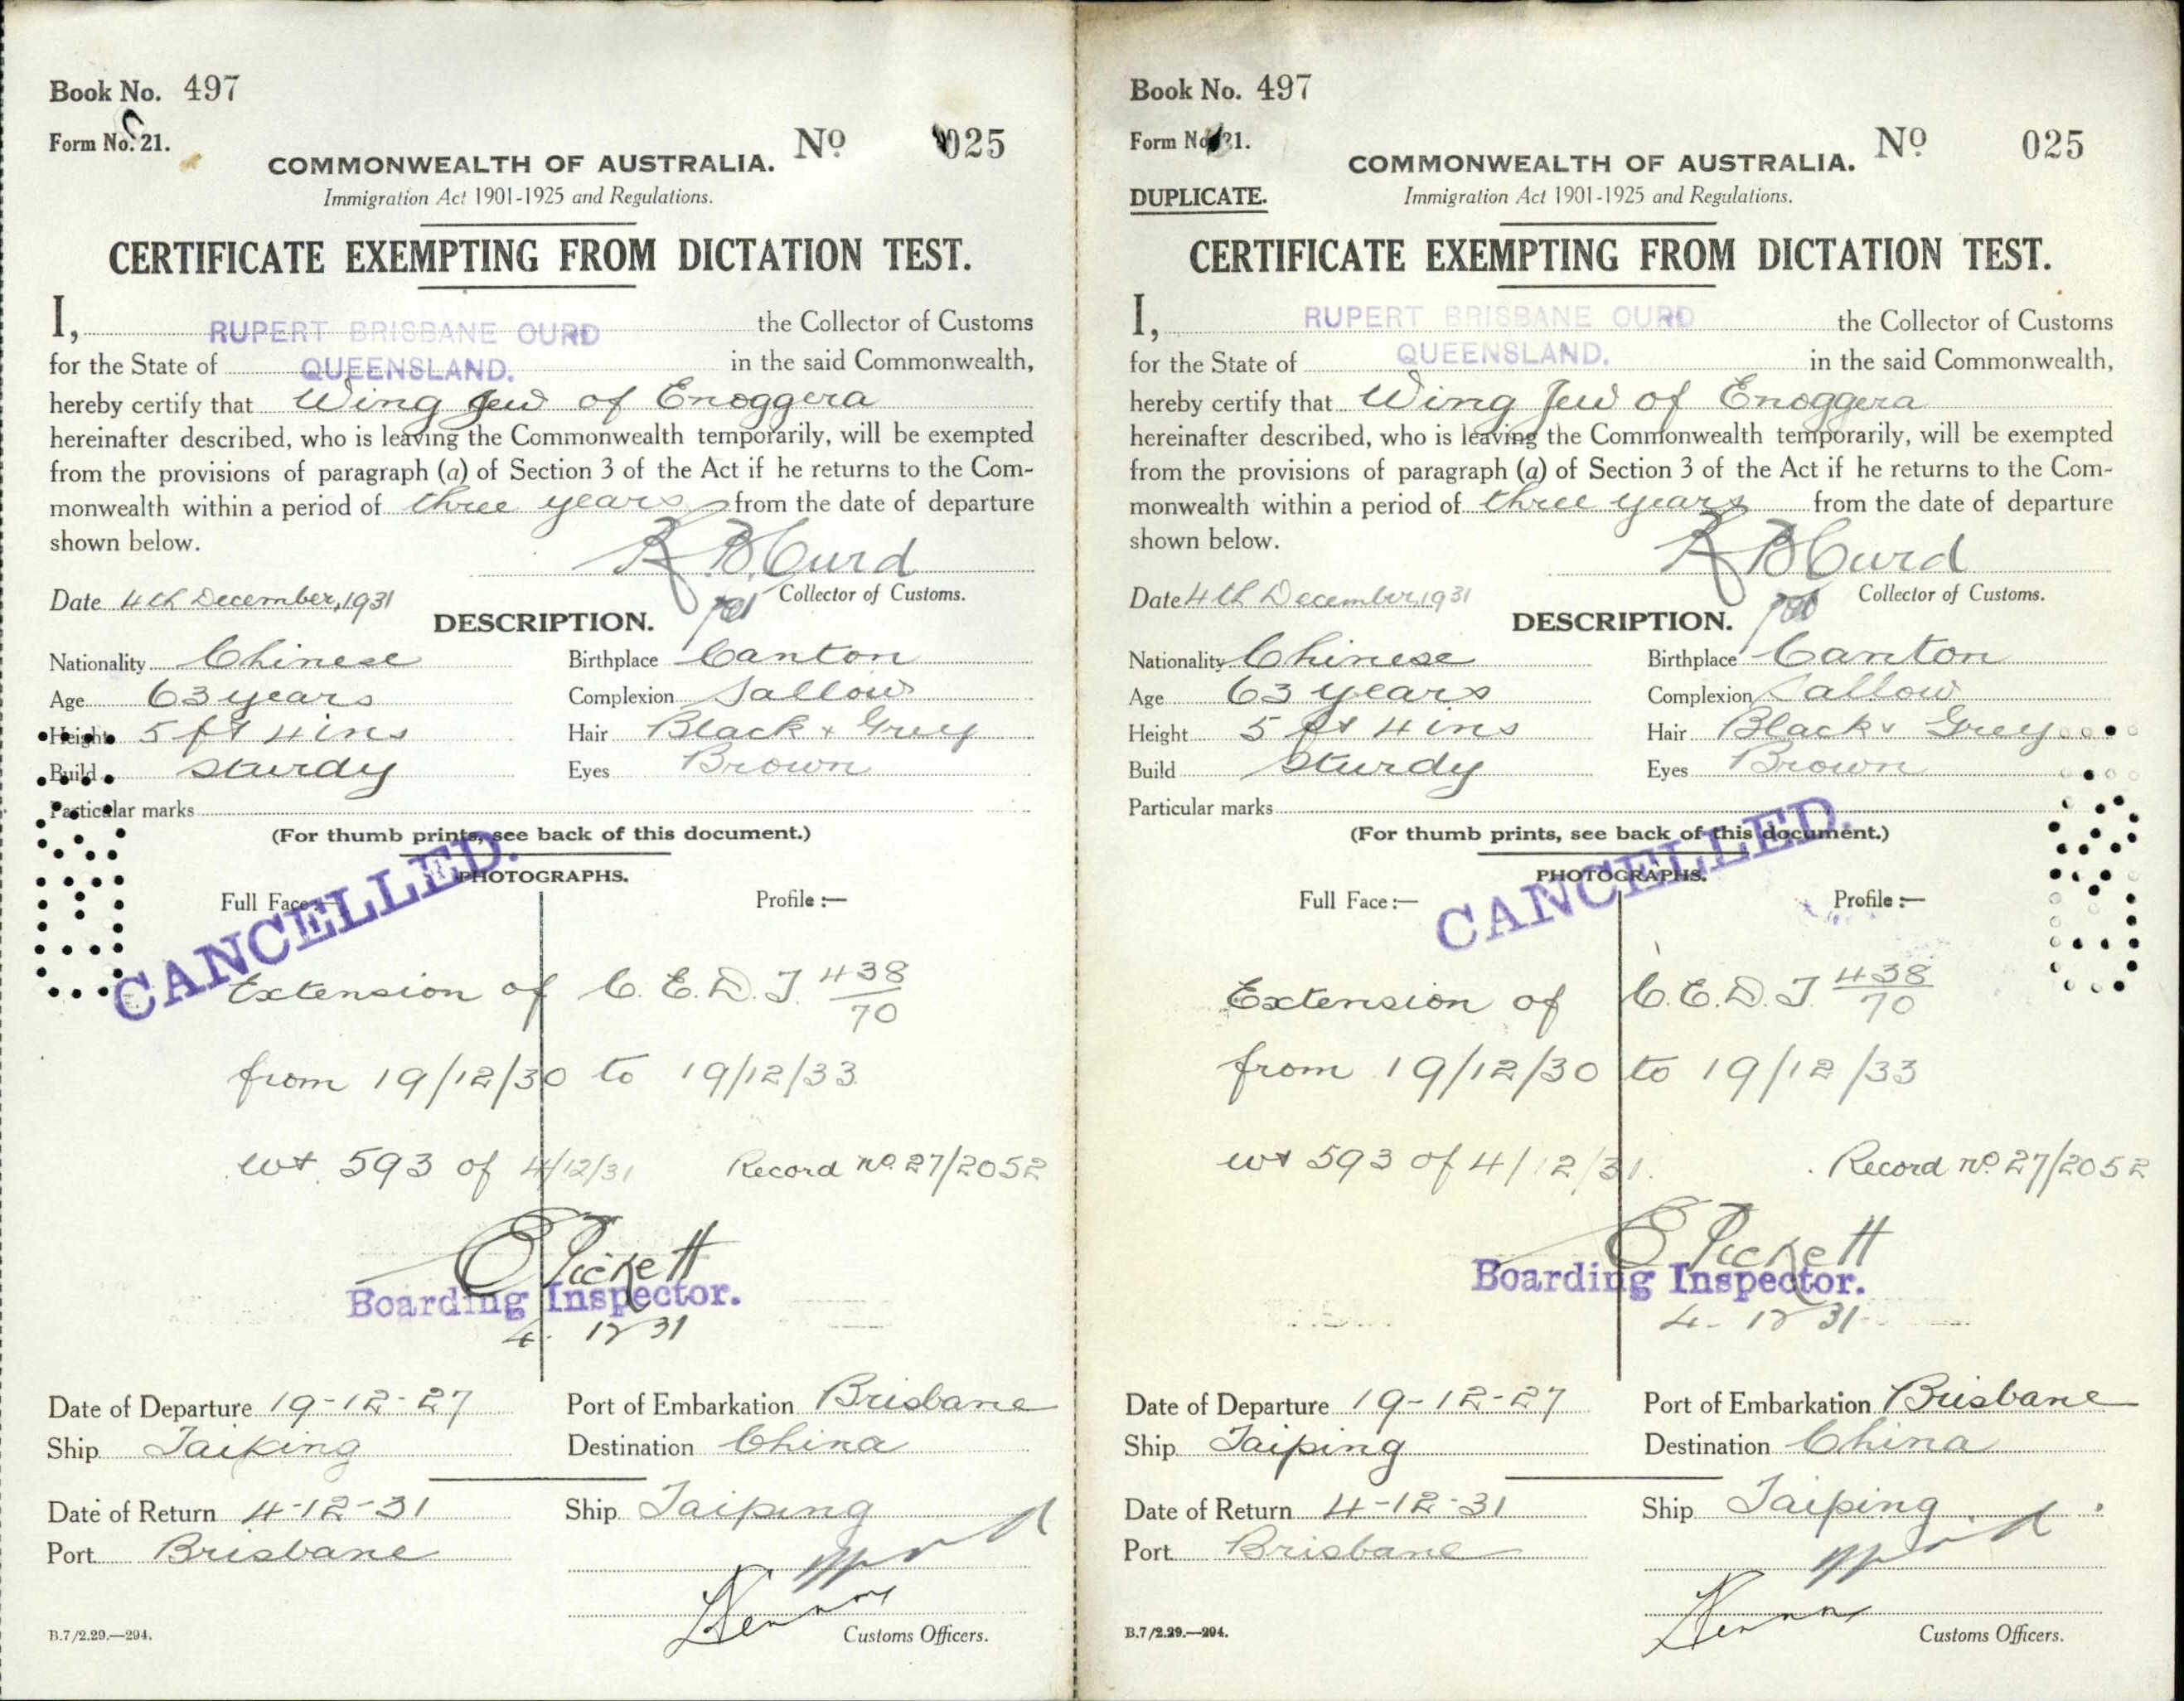 Book No. 497
Form No. 21.
No 025
COMMONWEALTH OF AUSTRALIA.
Immigration Act 1901-1925 and Regulations.
CERTIFICATE EXEMPTING FROM DICTATION TEST.
I, RUPERT BRISBANE CURD the Collector of Customs
for the State of QUEENSLAND. in the said Commonwealth,
hereby certify that Wing Jew of Enoggera
hereinafter described, who is leaving the Commonwealth temporarily, will be exempted
from the provisions of paragraph (a) of Section 3 of the Act if he returns to the Com-
monwealth within a period of three years from the date of departure
shown below.
R B Curd
Date 4th December, 1931 Collector of Customs.
DESCRIPTION.
Nationality Chinese Birthplace Canton
Age 63 years Complexion Sallow
Height 5 ft 4 ins Hair Black & Grey
Build Sturdy Eyes Brown
Particular marks
(For thumb prints, see back of this document.)
CANCELLED.
PHOTOGRAPHS.
Full Face:— Profile:—
Extension of C.E.D.T 438/70
from 19/12/30 to 19/12/33
wt 593 of 4/12/31 Record no 27/2052
E Pickett
Boarding Inspector.
4. 12 31
Date of Departure 19-12-27 Port of Embarkation Brisbane
Ship Taiping Destination China
Date of Return 4-12-31 Ship Taiping
Port Brisbane
B.7/2.29.—294. Customs Officers.
Book No. 497
Form No. 21.
No 025
COMMONWEALTH OF AUSTRALIA.
DUPLICATE. Immigration Act 1901-1925 and Regulations.
CERTIFICATE EXEMPTING FROM DICTATION TEST.
I, RUPERT BRISBANE CURD the Collector of Customs
for the State of QUEENSLAND. in the said Commonwealth,
hereby certify that Wing Jew of Enoggera
hereinafter described, who is leaving the Commonwealth temporarily, will be exempted
from the provisions of paragraph (a) of Section 3 of the Act if he returns to the Com-
monwealth within a period of three years from the date of departure
shown below.
R B Curd
Date 4th December, 1931 Collector of Customs.
DESCRIPTION.
Nationality Chinese Birthplace Canton
Age 63 years Complexion Sallow
Height 5 ft 4 ins Hair Black & Grey
Build Sturdy Eyes Brown
Particular marks
(For thumb prints, see back of this document.)
CANCELLED.
PHOTOGRAPHS.
Full Face:— Profile:—
Extension of C.E.D.T. 438/70
from 19/12/30 to 19/12/33
wt 593 of 4/12/31. Record no 27/2052
E Pickett
Boarding Inspector.
4. 12 31
Date of Departure 19-12-27 Port of Embarkation Brisbane
Ship Taiping Destination China
Date of Return 4-12-31 Ship Taiping
Port Brisbane
B.7/2.29.—294. Customs Officers.